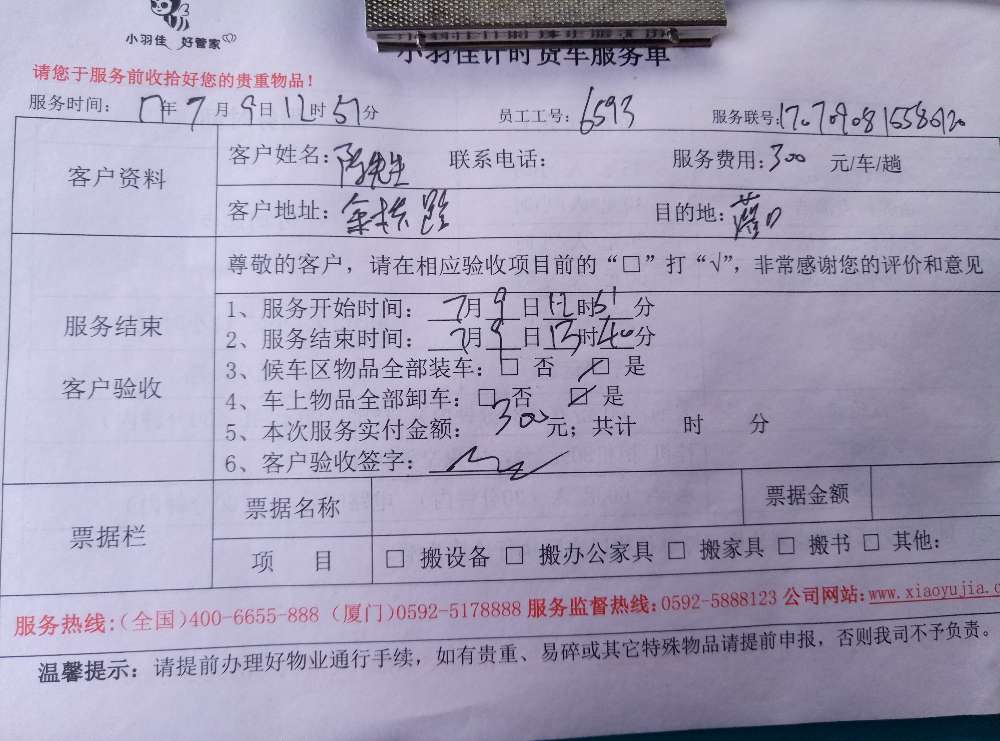 小羽佳 好管家
小羽佳计时货车服务单
请您于服务前收拾好您的贵重物品！
服务时间： 17年7月9日12时51分 员工工号：6593 服务联号：
客户资料
客户姓名：陈先生 联系电话： 服务费用：300 元/车/趟
客户地址： 目的地：
服务结束
客户验收
尊敬的客户，请在相应验收项目前的“□”打“√”，非常感谢您的评价和意见
1、服务开始时间：7月9日12时51分
2、服务结束时间：7月9日13时40分
3、候车区物品全部装车：□ 否 ☑ 是
4、车上物品全部卸车：□ 否 ☑ 是
5、本次服务实付金额：300元；共计 时 分
6、客户验收签字：
票据栏
票据名称 票据金额
项 目 □ 搬设备 □ 搬办公家具 □ 搬家具 □ 搬书 □ 其他：
服务热线：（全国）400-6655-888（厦门）0592-5178888 服务监督热线：0592-5888123 公司网站：www.xiaoyujia.c
温馨提示：请提前办理好物业通行手续，如有贵重、易碎或其它特殊物品请提前申报，否则我司不予负责。